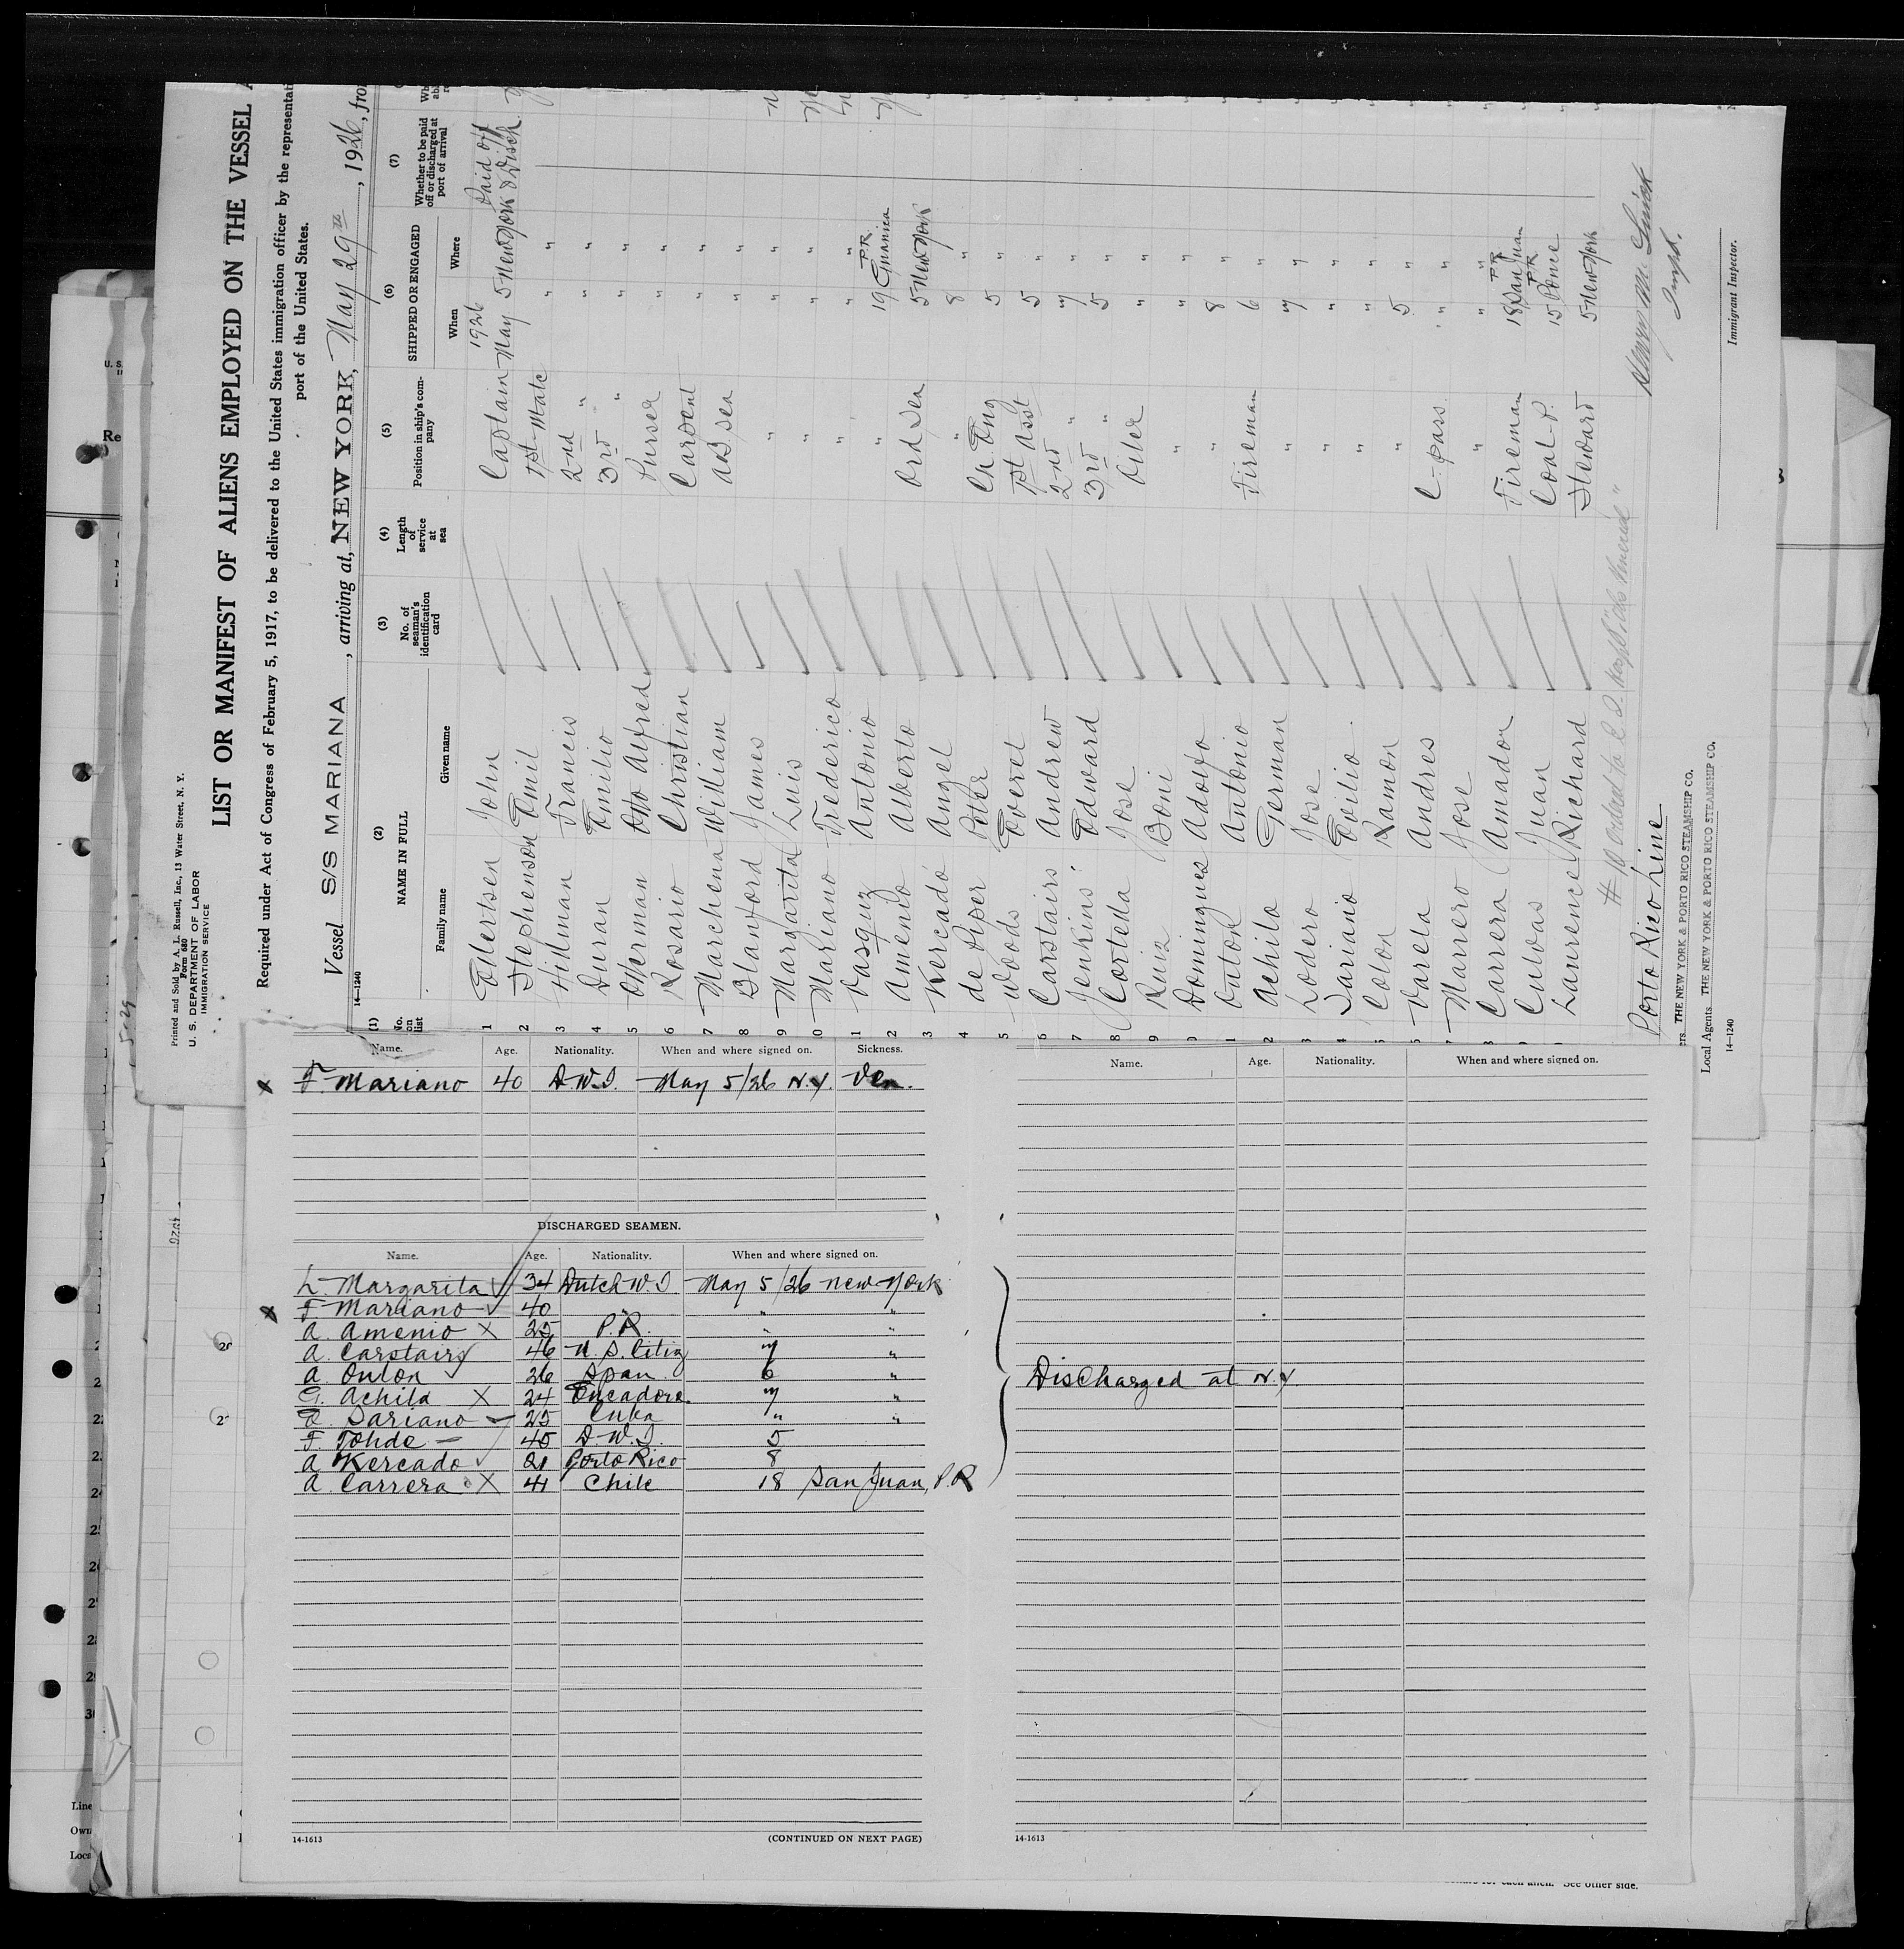 Printed and Sold by A. L. Russell, Inc., 13 Water Street, N. Y.
Form 680
U. S. DEPARTMENT OF LABOR
IMMIGRATION SERVICE
LIST OR MANIFEST OF ALIENS EMPLOYED ON THE VESSEL
Required under Act of Congress of February 5, 1917, to be delivered to the United States immigration officer by the representati
port of the United States.
Vessel S/S MARIANA, arriving at, NEW YORK, May 29th, 1926, from
14—1240
(1) (2) (3) (4) (5) (6) (7)
No. on list NAME IN FULL No. of seaman's identification card Length of service at sea Position in ship's company SHIPPED OR ENGAGED Whether to be paid off or discharged at port of arrival
Family name Given name When Where
1926
1 Ellertsen John Captain May 5 New York Paid off & Disch
2 Stephenson Emil 1st Mate " "
3 Hillman Francis 2nd " " "
4 Duran Emilio 3rd " " "
5 Offerman Otto Alfred Purser " "
6 Rosario Christian Carpent " "
7 Marchena William AB Sea " "
8 Blanford James " " "
9 Margarita Luis " " "
10 Mariano Frederico " " "
11 Vasquz Antonio " 19 Guanica P.R.
2 Amenio Alberto Ord Sea 5 New York
3 Kercado Angel " 8 "
4 de Piper Peter Ch. Eng 5 "
5 Woods Everet 1st Asst 5 "
6 Carstairs Andrew 2nd " 7 "
7 Jenkins Edward 3rd " 5 "
8 Cortella Jose Oiler " "
9 Ruiz Boni " " "
0 Domingues Adolfo " 8 "
1 Outon Antonio Fireman 6 "
2 Achila German " 7 "
3 Lodero Jose " " "
4 Sariano Evilio " " "
5 Colon Ramon " 5 "
6 Varela Andres C-pass " "
7 Marrero Jose " " "
8 Carrera Amador Fireman 18 San Juan P.R.
Cuevas Juan Coal-P. 15 Ponce P.R.
Laurence Richard Steward 5 New York
Porto Rico Line
THE NEW YORK & PORTO RICO STEAMSHIP CO.
Local Agents THE NEW YORK & PORTO RICO STEAMSHIP CO.
14—1240
Immigrant Inspector.
Name. Age. Nationality. When and where signed on. Sickness.
x F. Mariano 40 D.W.I. May 5/26 N.Y. Ven.
DISCHARGED SEAMEN.
Name. Age. Nationality. When and where signed on.
L. Margarita 34 Dutch W.I May 5/26 New York
x F Mariano 40 " " "
A. Amenio X 25 P.R. " "
A. Carstairs 46 U.S. Citiz 7 "
A. Outon 26 Span 6 "
G. Achila X 24 Encadore. 7 "
E. Sariano 25 Cuba " "
F. Tohde 45 D.W.I. 5
A Kercado 21 Porto Rico 8
A. Carrera X 41 Chile 18 San Juan, P.R
14-1613 (CONTINUED ON NEXT PAGE)
Name. Age. Nationality. When and where signed on.
Discharged at N.Y
14-1613
See other side.